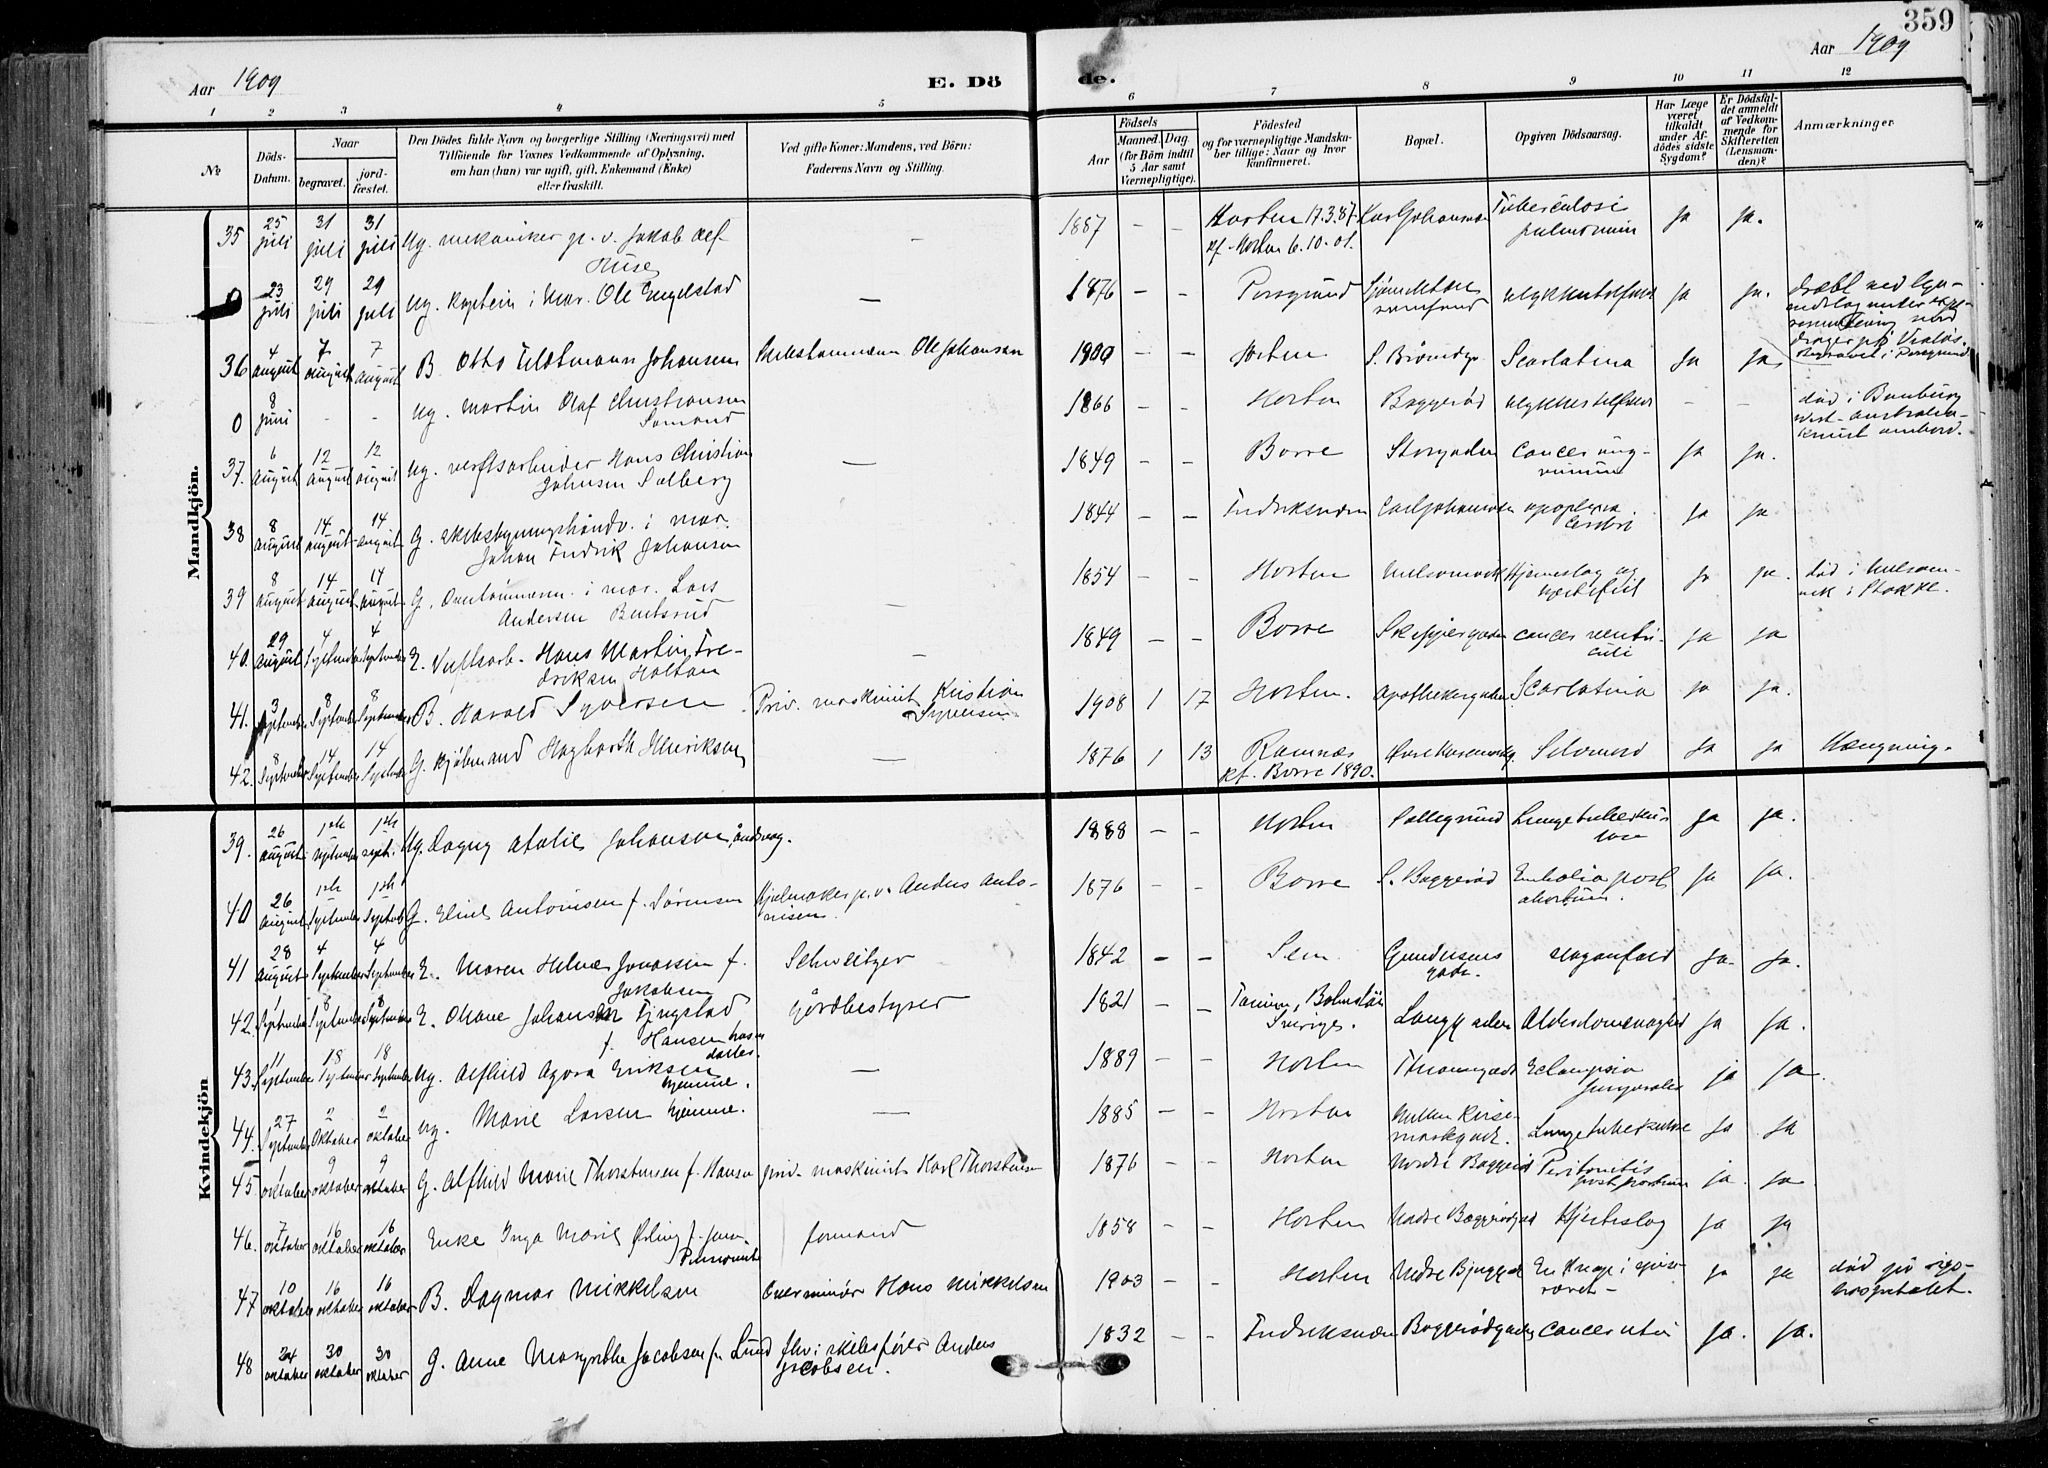 359
Aar 1909
E. Dö
de.
Aar 1909
1 2 3 4 5 6 7 8 9 10 11 12
№
Döds-Datum.
Naar
begravet.
jord-fæstet.
Den Dödes fulde Navn og borgerlige Stilling (Næringsvei) med
Tilföiende for Voxnes Vedkommende af Oplysning,
om han (hun) var ugift, gift, Enkemand (Enke)
eller fraskilt.
Ved gifte Koner: Mandens, ved Börn:
Faderens Navn og Stilling.
Födsels
Aar
Maaned. Dag.
(for Börn indtil
5 Aar samt
Værnepligtige).
Födested
og for værnepligtige Mandska-
ber tillige: Naar og hvor
konfirmeret.
Bopæl.
Opgiven Dödsaarsag.
Har Læge
været
tilkaldt
under Af-
dödes sidste
Sygdom?
Er Dödsfal-
det anmeldt
af Vedkom-
mende for
Skifteretten
(Lensman-
den)?
Anmærkninger
Mandkjön.
35 25 juli 31 juli 31 juli Ug. mekaniker p. v. Jakob – 1887 – – Horten 17.3.87. kf. Horten 6.10.01. Karljohansværn Tuberculosi pulmonum ja ja.
0 23 juli 29 juli 29 juli Ug. kaptein i Mar. Ole Engelstad – 1876 – – Porsgrund ulykkestilfælde ja ja. dræbt ved lyn- begravet i Porsgrund.
36 4 august 7 august 7 august B. Otto Johansen Ole Johansen 1900 – – Horten Scarlatina ja ja
0 8 juni – – Ug. Martin Olaf Christiansen Sømand 1866 – – Horten Baggerød ulykkestilfælde – – død i Bunbury West-australien knust ombord.
37. 6 august 12 august 12 august Ug. verftsarbeider Hans Christian Johnsen Solberg – 1849 – – Borre Storgaden cancer ja ja.
38 8 august 14 august 14 august G. skibsbygningshåndv. i mar. Johan Fredrik Johansen 1844 – – Fredriksværn Carljohansværn apoplexia cerebri ja ja
39 8 august 14 august 14 august G. i mar. Lars Andersen Bentsrud – 1854 – – Horten Melsomvik Hjerneslag og hjertefeil ja ja. død i Melsom- vik i Stokke.
40. 29 august 4 September 4 September E. Verftsarb. Hans Martin Fre- driksen Holtan – 1849 – – Borre Skippergaden cancer ventri- culi ja ja
41. 3 September 8 September 8 September B. Harald Syversen Priv. maskinist Kristian Syversen 1908 1 17 Horten. Apothekergaden Scarlatina ja ja.
42. 8 September 14 September 14 September G. kjøbmand Hagbarth Henriksen – 1876 1 13 Ramnæs kf. Borre 1890. Selvmord ja ja Hængning.
Kvindekjön
39. 26 august 1ste September 1ste sept. Ug. Dagny Atalie Johansen, åndsvag. 1888 – – Horten Sollegrund Lungetuberku- lose ja ja.
40 26 august 1ste September 1ste September G. Eline Antonisen f. Sørensen Hjulmaker p. v. Anders Anto- nisen. 1876 – – Borre S. Baggerød Embolia post abortum. ja ja.
41 28 august 4 September 4 September E. Maren Helene f. Jakobsen Schweitzer 1842 – – Sem Gundersens gade. slaganfald ja. ja.
42. 1 September 8 September 8 September E. Oliane Johansen Tingstad f. Hansen gårdbestyrer 1821 – – Tanum, Bohuslän Sverige. Langgaden Alderdomssvaghed ja ja.
43. 11 September 18 September 18 September Ug. Alfhild Agora Eriksen hjemme. – 1889 – – Horten Eclampsia ja ja.
44. 27 September 2 Oktober 2 oktober Ug. Marie Larsen hjemme. – 1885 – – Horten Lungetuberkulose ja ja
45 1 oktober 9 oktober 9 oktober G. Alfhild Marie Thorstensen f. Hansen priv. maskinist Karl Thorstensen 1876 – – Horten Nordre Baggerød Peritonitis post partum ja. ja
46. 7 oktober 16 oktober 16 oktober Enke Inga Marie Ørling f. formand 1858 – – Horten Nedre Baggerødgd Hjerteslag ja ja
47 10 oktober 16 oktober 16 oktober B. Dagmar Mikkelsen Overminør Hans Mikkelsen 1903 – – Horten En knap i spise- røret – ja ja død på rigs- hospitalet.
48 24 oktober 30 oktober 30 oktober G. Anne Margrethe Jacobsen f. Lund fhv. skibsfører Anders Jacobsen. 1832 – – Fredriksværn Baggerødgaden Cancer uteri ja. ja.